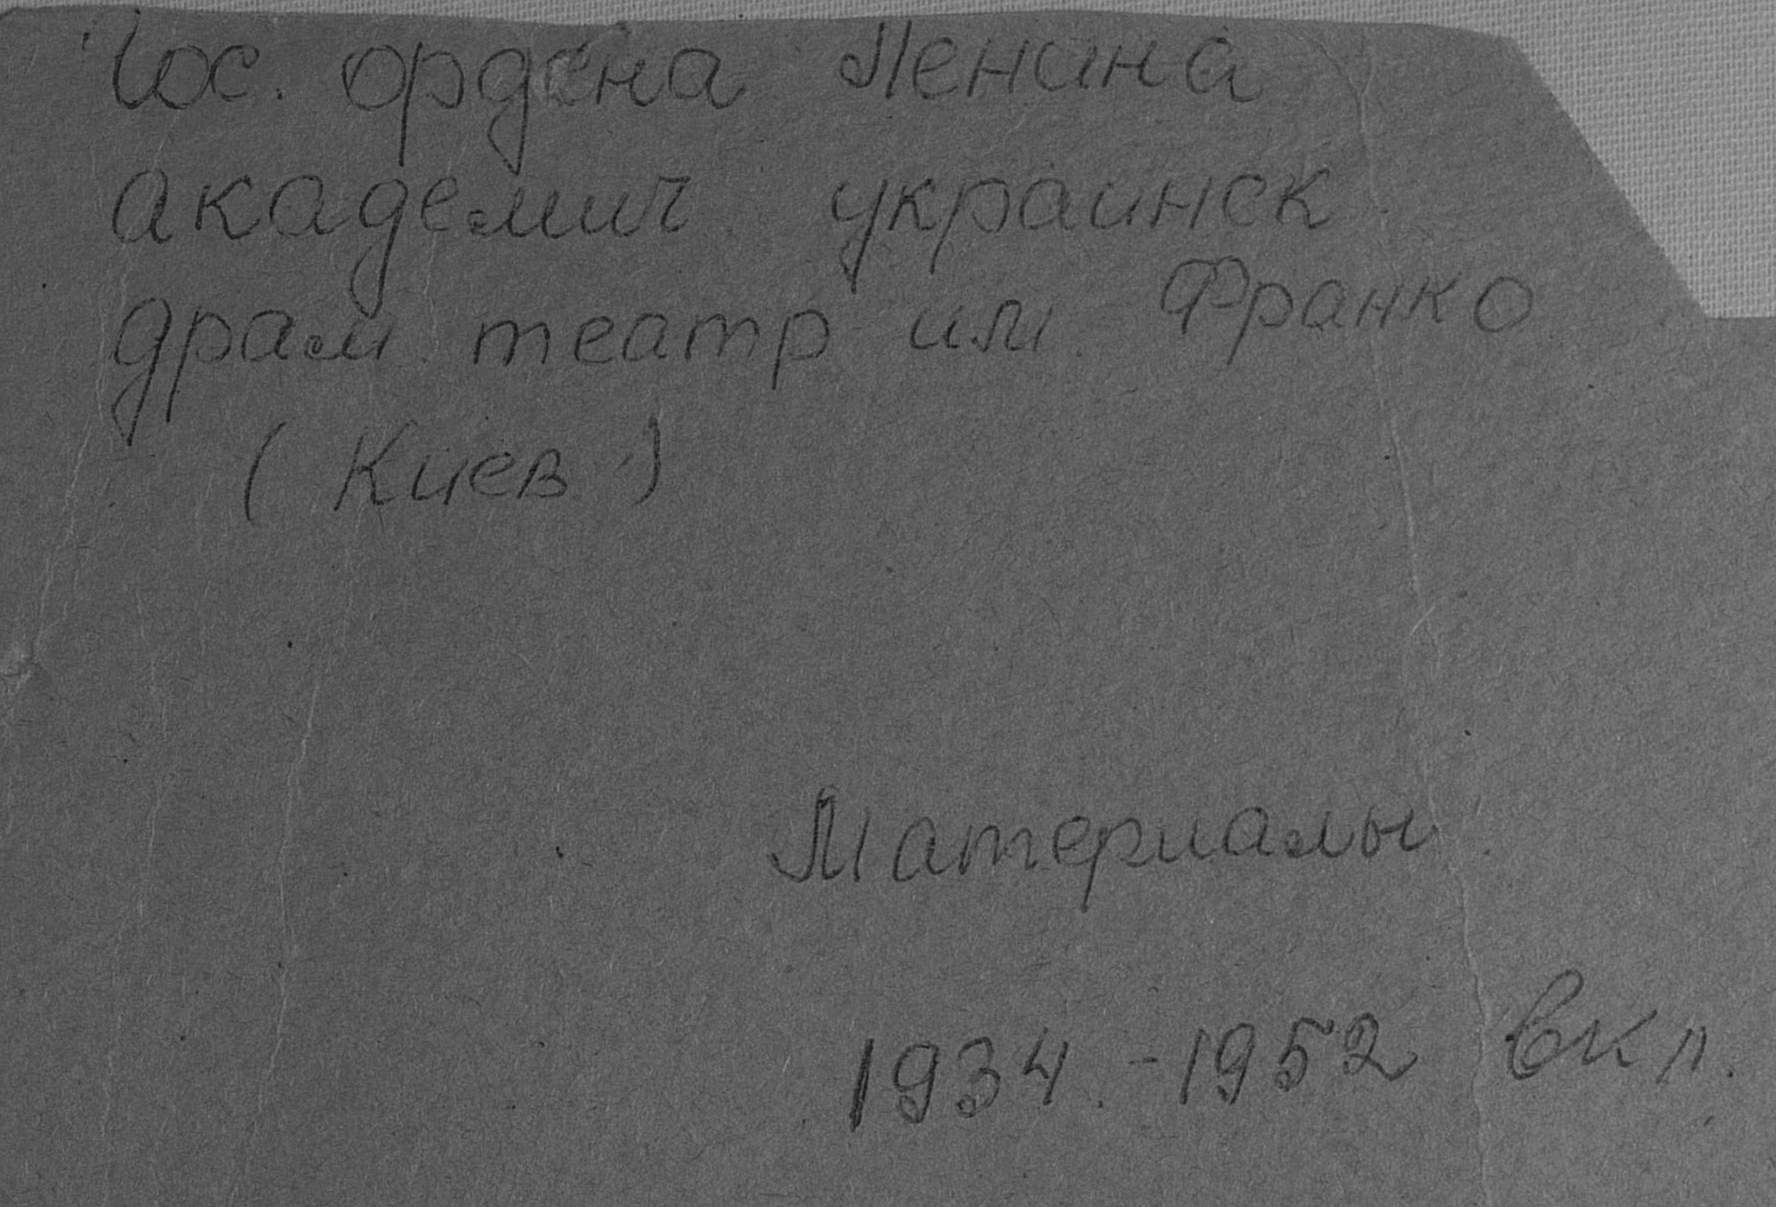 Гос. ордена Ленина
академич украинск
драм. театр им. Франко
(Киев)
Материалы
1934.-1952 вкл.